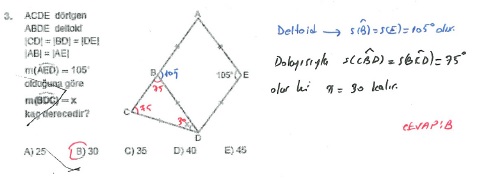 3. ACDE dörtgen
ABDE deltoid
|CD| = |BD| = |DE|
|AB| = |AE|
m(AED) = 105°
olduğuna göre
m(BDC) = x
kaç derecedir?
A
B
105
75
105°
E
C
75
30
x
D
A) 25 B) 30 C) 35 D) 40 E) 45
Deltoid → s(B) = s(E) = 105° olur.
Dolayısıyla s(CBD) = s(BCD) = 75°
olur ki x = 30 kalır.
CEVAP: B